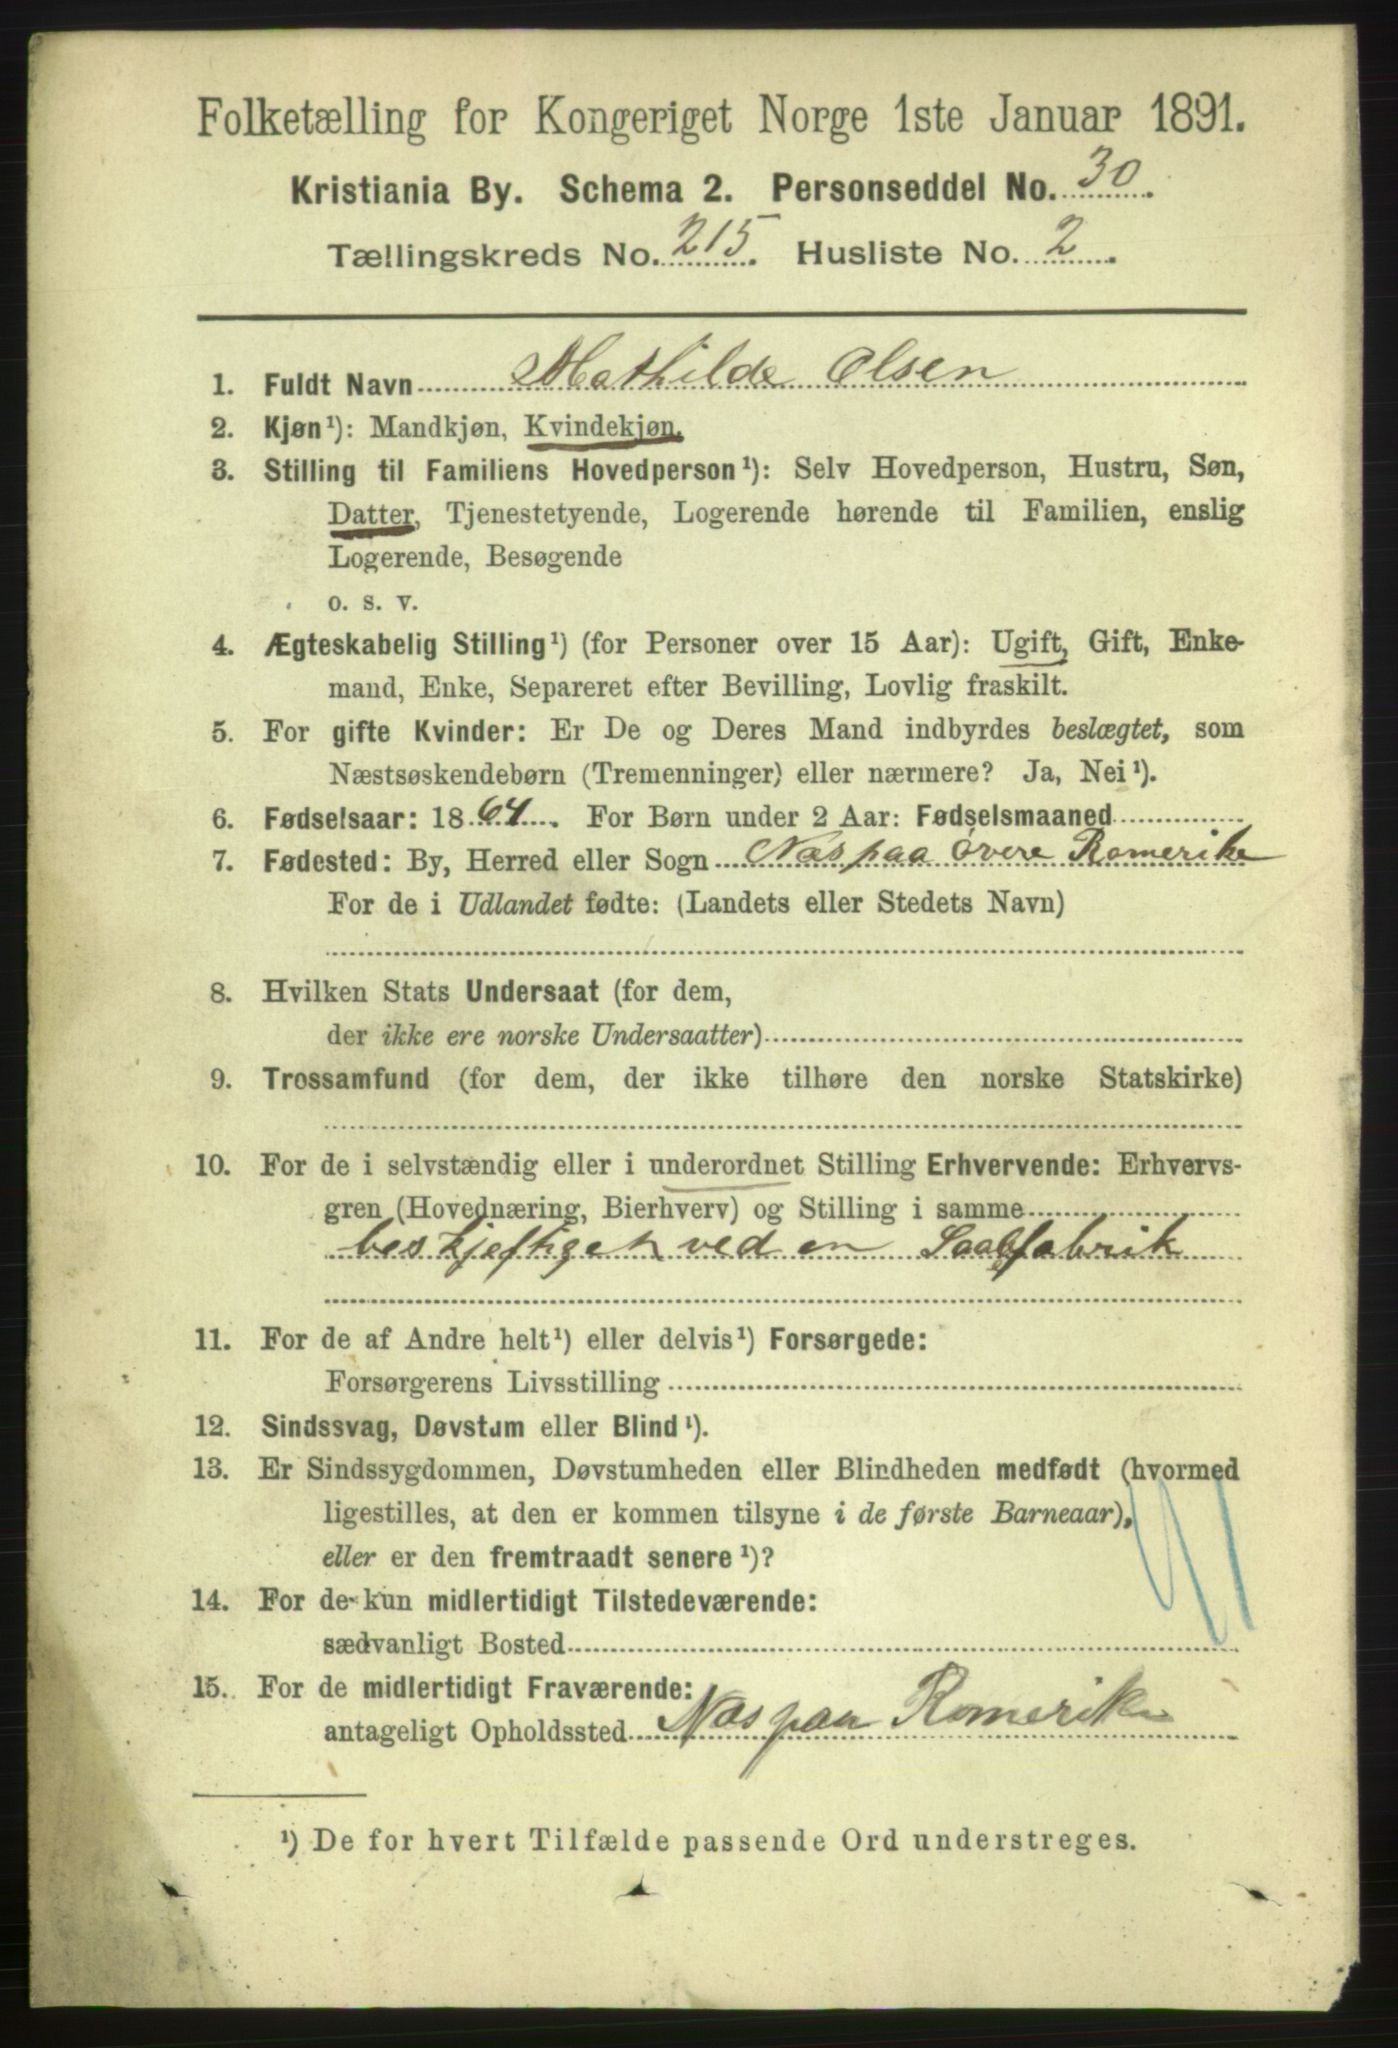 Folketælling for Kongeriget Norge 1ste Januar 1891.
Kristiania By. Schema 2. Personseddel No. 30.
Tællingskreds No. 215. Husliste No. 2.
1. Fuldt Navn Mathilde Olsen
2. Kjøn¹): Mandkjøn, Kvindekjøn.
3. Stilling til Familiens Hovedperson¹): Selv Hovedperson, Hustru, Søn,
Datter, Tjenestetyende, Logerende hørende til Familien, enslig
Logerende, Besøgende
o. s. v.
4. Ægteskabelig Stilling¹) (for Personer over 15 Aar): Ugift, Gift, Enke-
mand, Enke, Separeret efter Bevilling, Lovlig fraskilt.
5. For gifte Kvinder: Er De og Deres Mand indbyrdes beslægtet, som
Næstsøskendebørn (Tremenninger) eller nærmere? Ja, Nei¹).
6. Fødselsaar: 1864. For Børn under 2 Aar: Fødselsmaaned
7. Fødested: By, Herred eller Sogn Næs paa Øvere Romerike
For de i Udlandet fødte: (Landets eller Stedets Navn)
8. Hvilken Stats Undersaat (for dem,
der ikke ere norske Undersaatter)
9. Trossamfund (for dem, der ikke tilhøre den norske Statskirke)
10. For de i selvstændig eller i underordnet Stilling Erhvervende: Erhvervs-
gren (Hovednæring, Bierhverv) og Stilling i samme
beskjeftiget ved en
11. For de af Andre helt¹) eller delvis¹) Forsørgede:
Forsørgerens Livsstilling
12. Sindssvag, Døvstum eller Blind¹).
13. Er Sindssygdommen, Døvstumheden eller Blindheden medfødt (hvormed
ligestilles, at den er kommen tilsyne i de første Barneaar),
eller er den fremtraadt senere¹)?
14. For de kun midlertidigt Tilstedeværende:
sædvanligt Bosted
15. For de midlertidigt Fraværende:
antageligt Opholdssted Næs paa Romerike
¹) De for hvert Tilfælde passende Ord understreges.